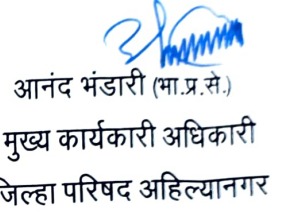 आनंद भंडारी (भा.प्र.से.)
मुख्य कार्यकारी अधिकारी
जिल्हा परिषद अहिल्यानगर